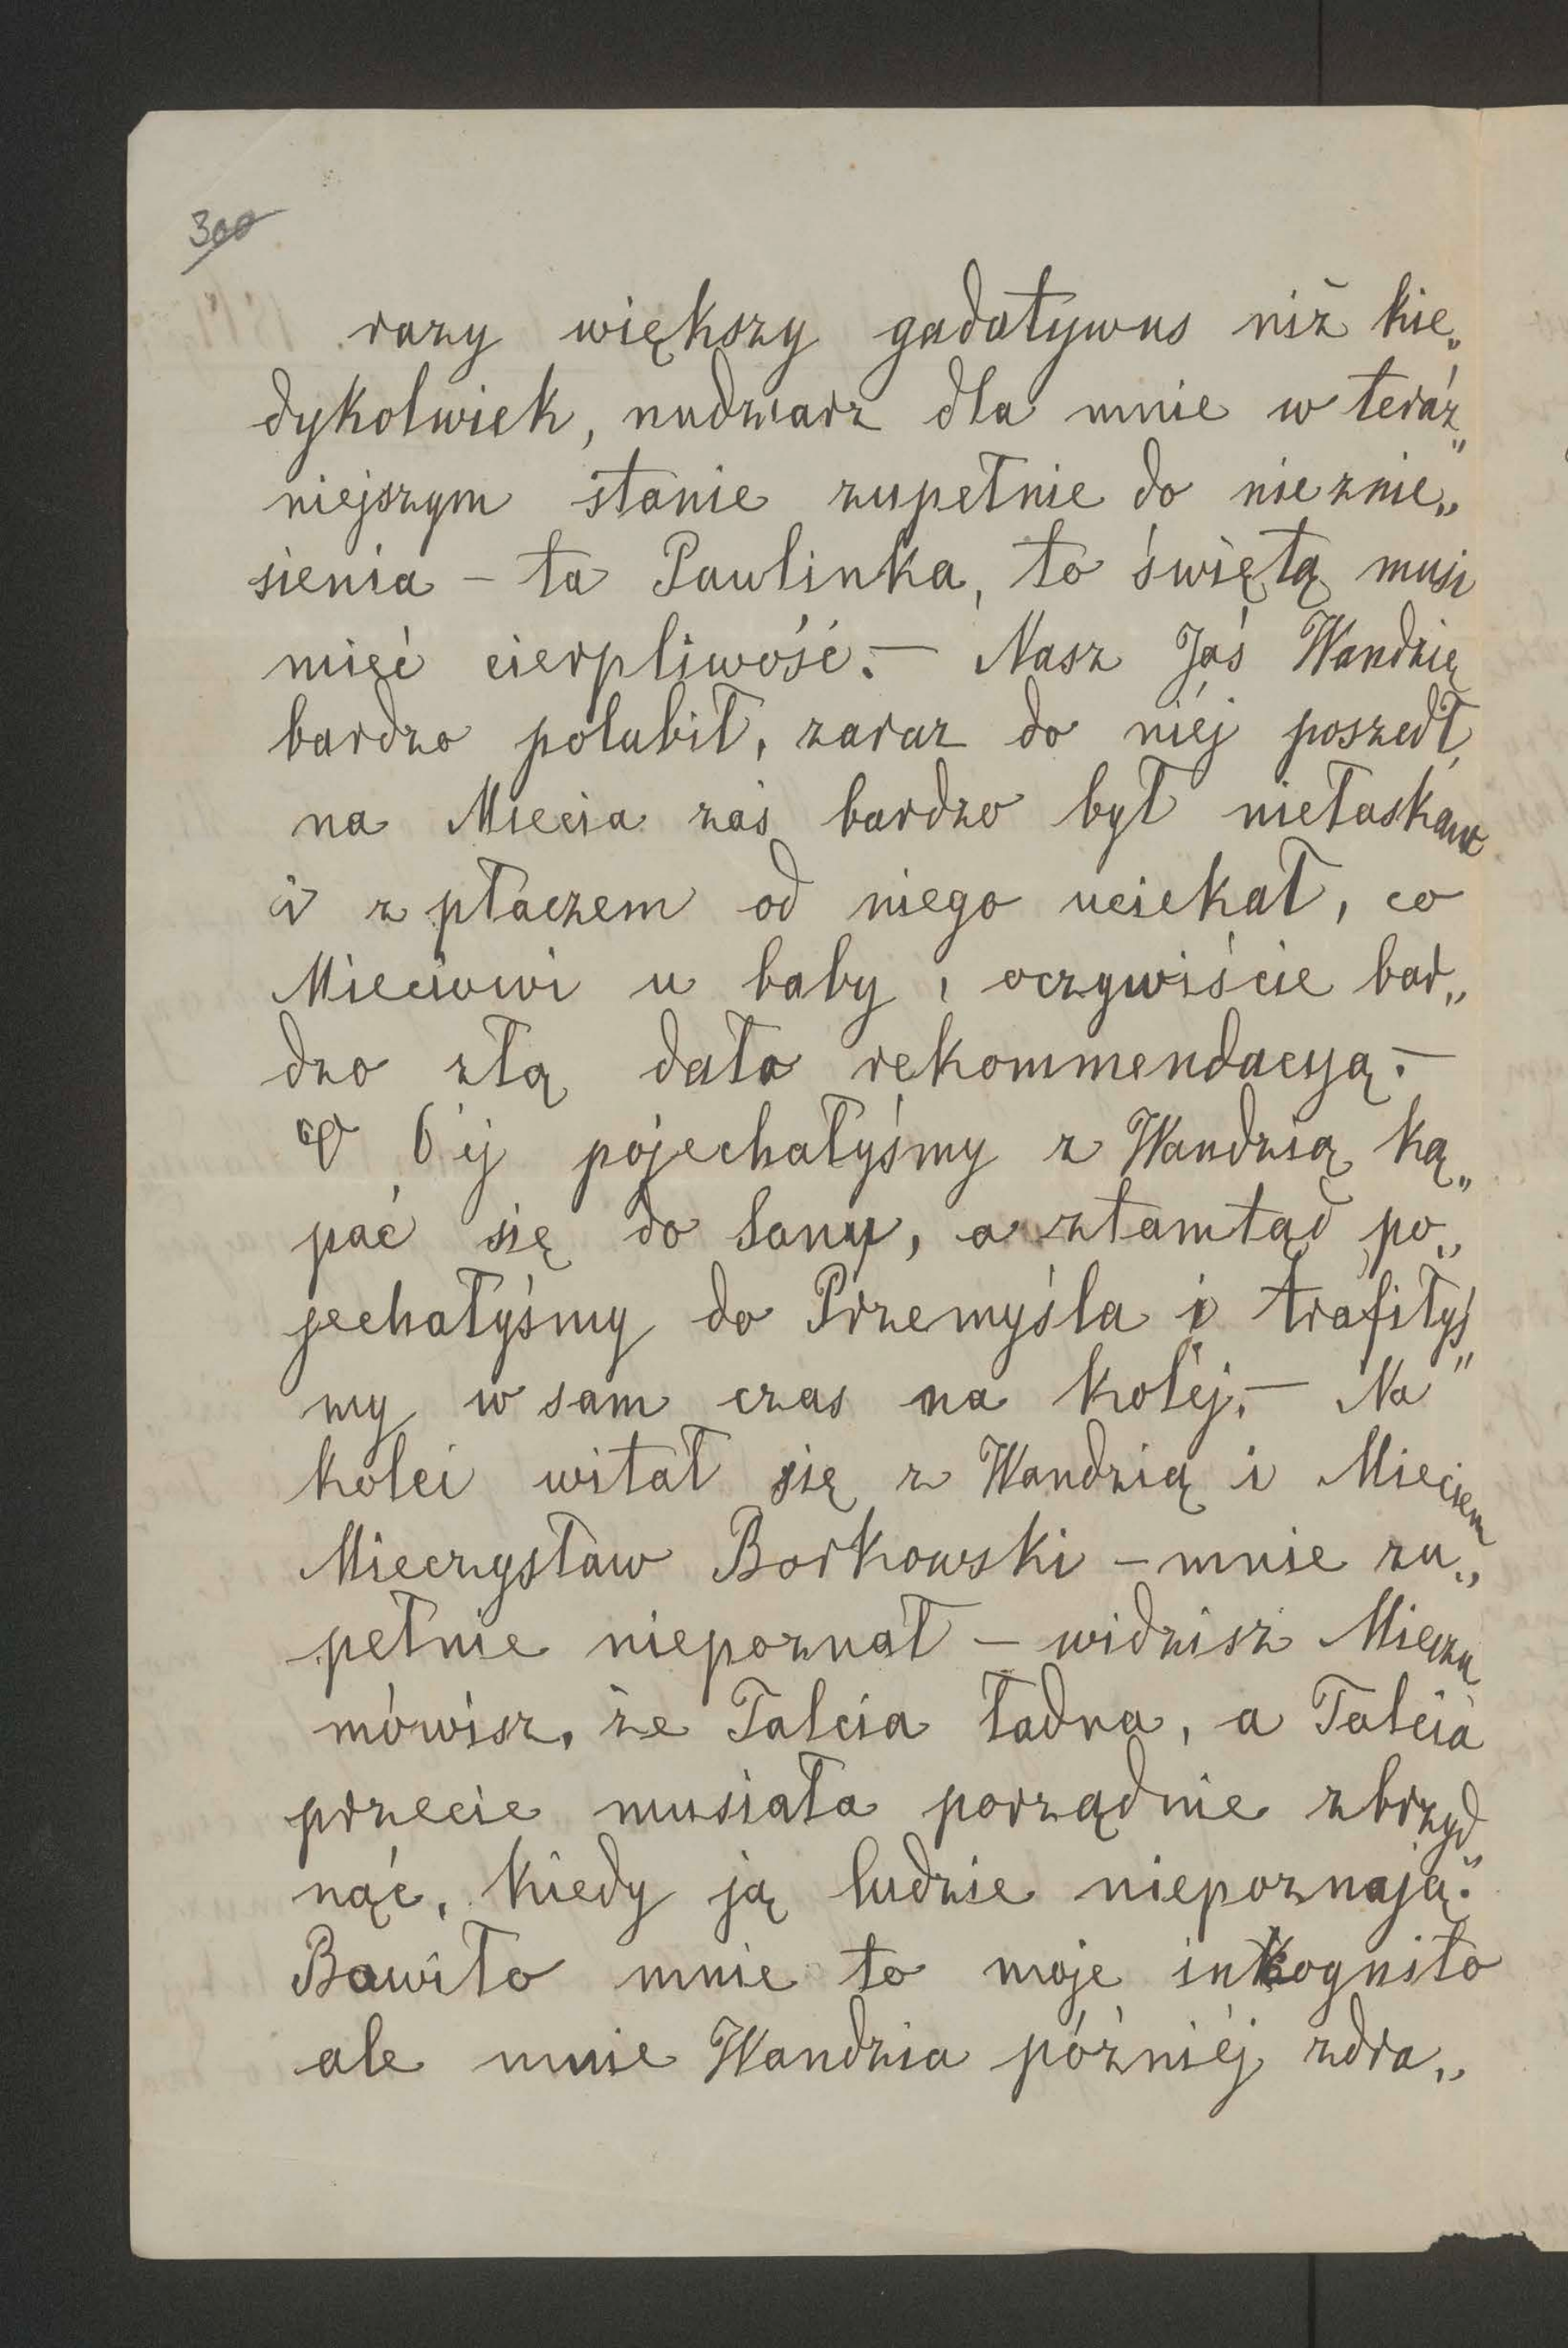 300
razy większy gadatywus niż kie„
dykolwiek, nudziarz dla mnie w teraź„
niejszym stanie zupełnie do nieznie„
sienia – ta Paulinka, to świętą musi
mieć cierpliwość. – Nasz Jaś Wandzię
bardzo polubił, zaraz do niéj poszedł,
na Miecia zaś bardzo był niełaskaw
i z płaczem od niego uciekał, co
Mieciowi u baby, oczywiście bar„
dzo złą dało rekommendacyą. –
O 6ej pojechałyśmy z Wandzią ką„
pać się do Sanu, a ztamtąd po„
jechałyśmy do Przemyśla i trafiłyś„
my w sam czas na kolej. – Na
kolei witał się z Wandzią i Mieciem
Mieczysław Borkowski – mnie zu„
pełnie niepoznał – widzisz Mieczu
mówisz, że Talcia ładna, a Talcia
przecie musiała porządnie zbrzyd„
nąć, kiedy ją ludzie niepoznają.
Bawiło mnie to moje inkognito
ale mnie Wandzia późniéj zdra„